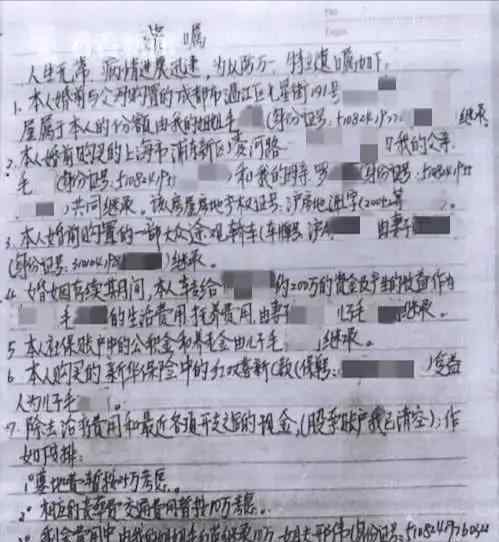 遗嘱
人生无常,病情进展迅速,为以防万一,特立遗嘱如下。
1. 本人婚前与父母购置的成都市温江区七星街191号
屋属于本人的份额由我的姐姐毛 (身份证号:5108241977 继承
2. 本人婚前购买的上海市浦东新区 河路 我的父亲
毛 (身份证号:510824195 )和我的母亲罗 (身份证号:510824195
)共同继承。该房屋房地产权证号:沪房地浦字(2004)第 。
3. 本人婚前购置的一部大众途观轿车(车牌: 沪A 由妻子
(身份证号:310104198 )继承。
4. 婚姻存续期间,本人转给 约200万的资金及产生的收益作为
毛 的生活费用 抚养费用 由妻子 儿子毛 继承。
5 本人社保账户中的公积金和养老金由儿子毛 继承。
6 本人购买的新华保险中的红双喜新C款(保单: )受益
人为儿子毛 。
7. 除去治疗费用和最近各项开支之后的现金,(股票账户我已清空);作
如下安排:
1° 墓地费暂按 万考虑。
2° 相应的丧葬费 交通费用暂按10万考虑。
3° 剩余费用中由我的姐姐毛 继承10万 姐夫邢伟(身份证号:510824197603